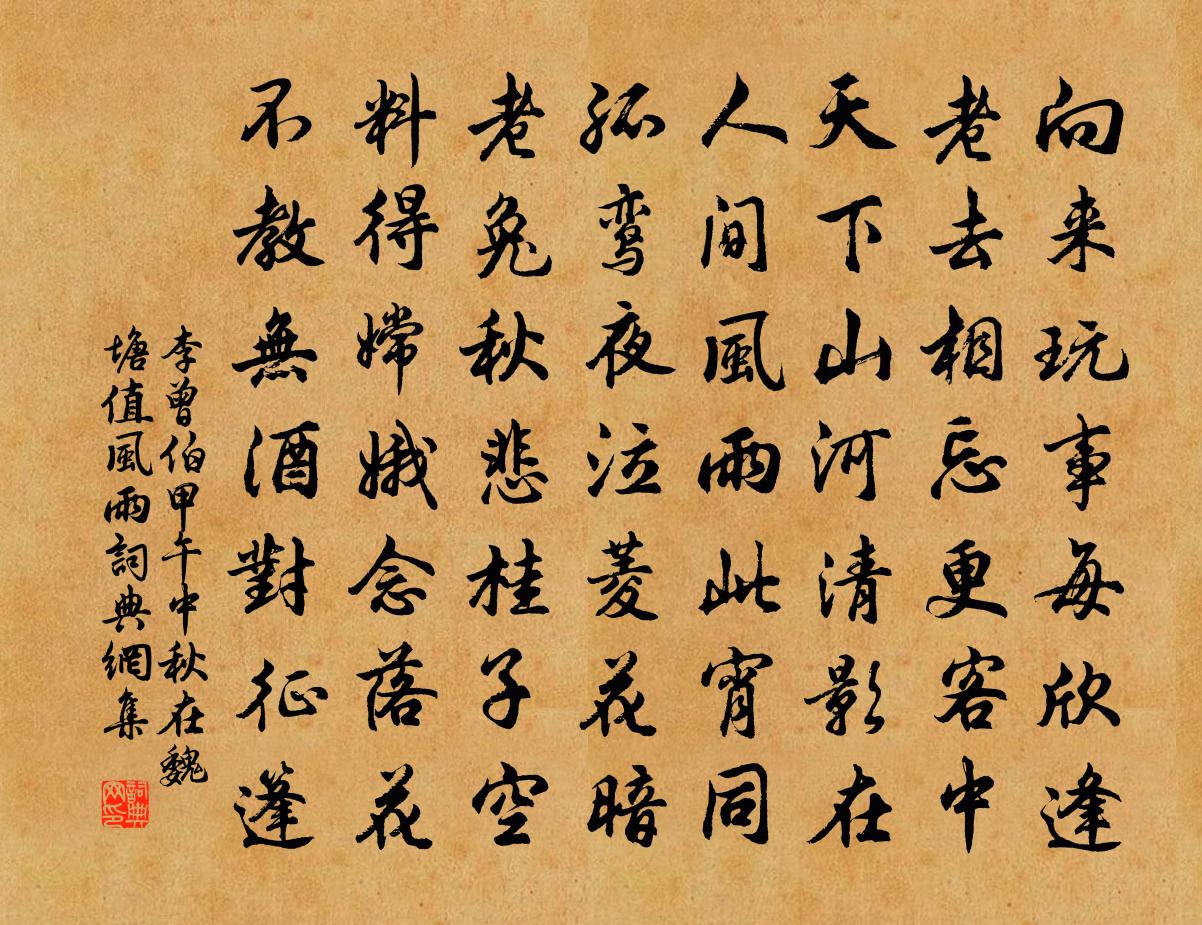 向来玩事每欣逢
老去相忘更客中
天下山河清影在
人间風雨此宵同
孤鸾夜泣菱花暗
老兔秋悲桂子空
料得嫦娥念落花
不教無酒對征篷
李曾伯甲午中秋在魏
塘值風雨詞典網集
詞典网印